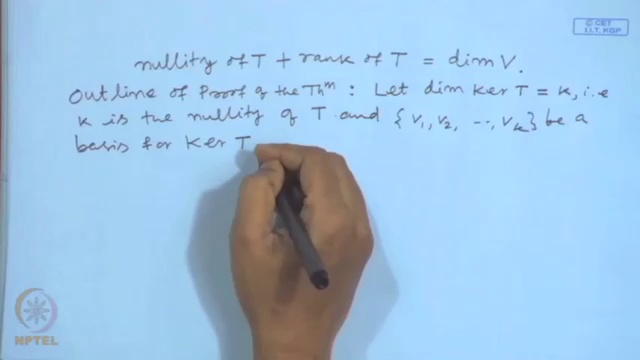 © CET
I.I.T. KGP
nullity of T + rank of T = dim V.
Outline of Proof of the Thm : Let dim Ker T = k, i.e
k is the nullity of T and {v1, v2, ..., vk} be a
basis for Ker T
NPTEL